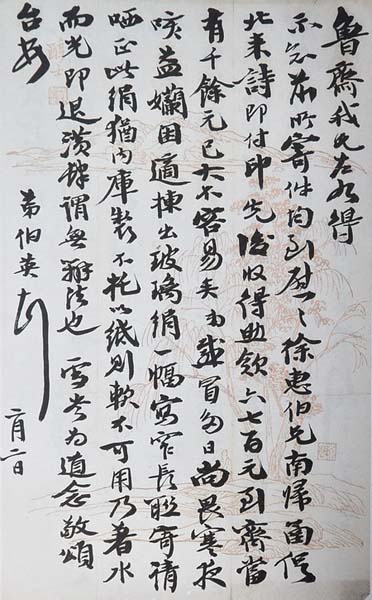 魯齋我兄左右得
示並前所寄件均到慰〻徐惠伯兄南歸
北來詩即付印先後收得助欵六七百元到齊當
有千餘元已大不容易矣弟感冒多日尚畏寒夜
咳益嬾困適揀出玻璃絹一幅寫窄長聯寄請
哂正此絹猶內庫製不托以紙則軟不可用乃著水
而光即退潢肆謂無辦法也雪老為道念敬頌
台安
弟伯英
二月二日